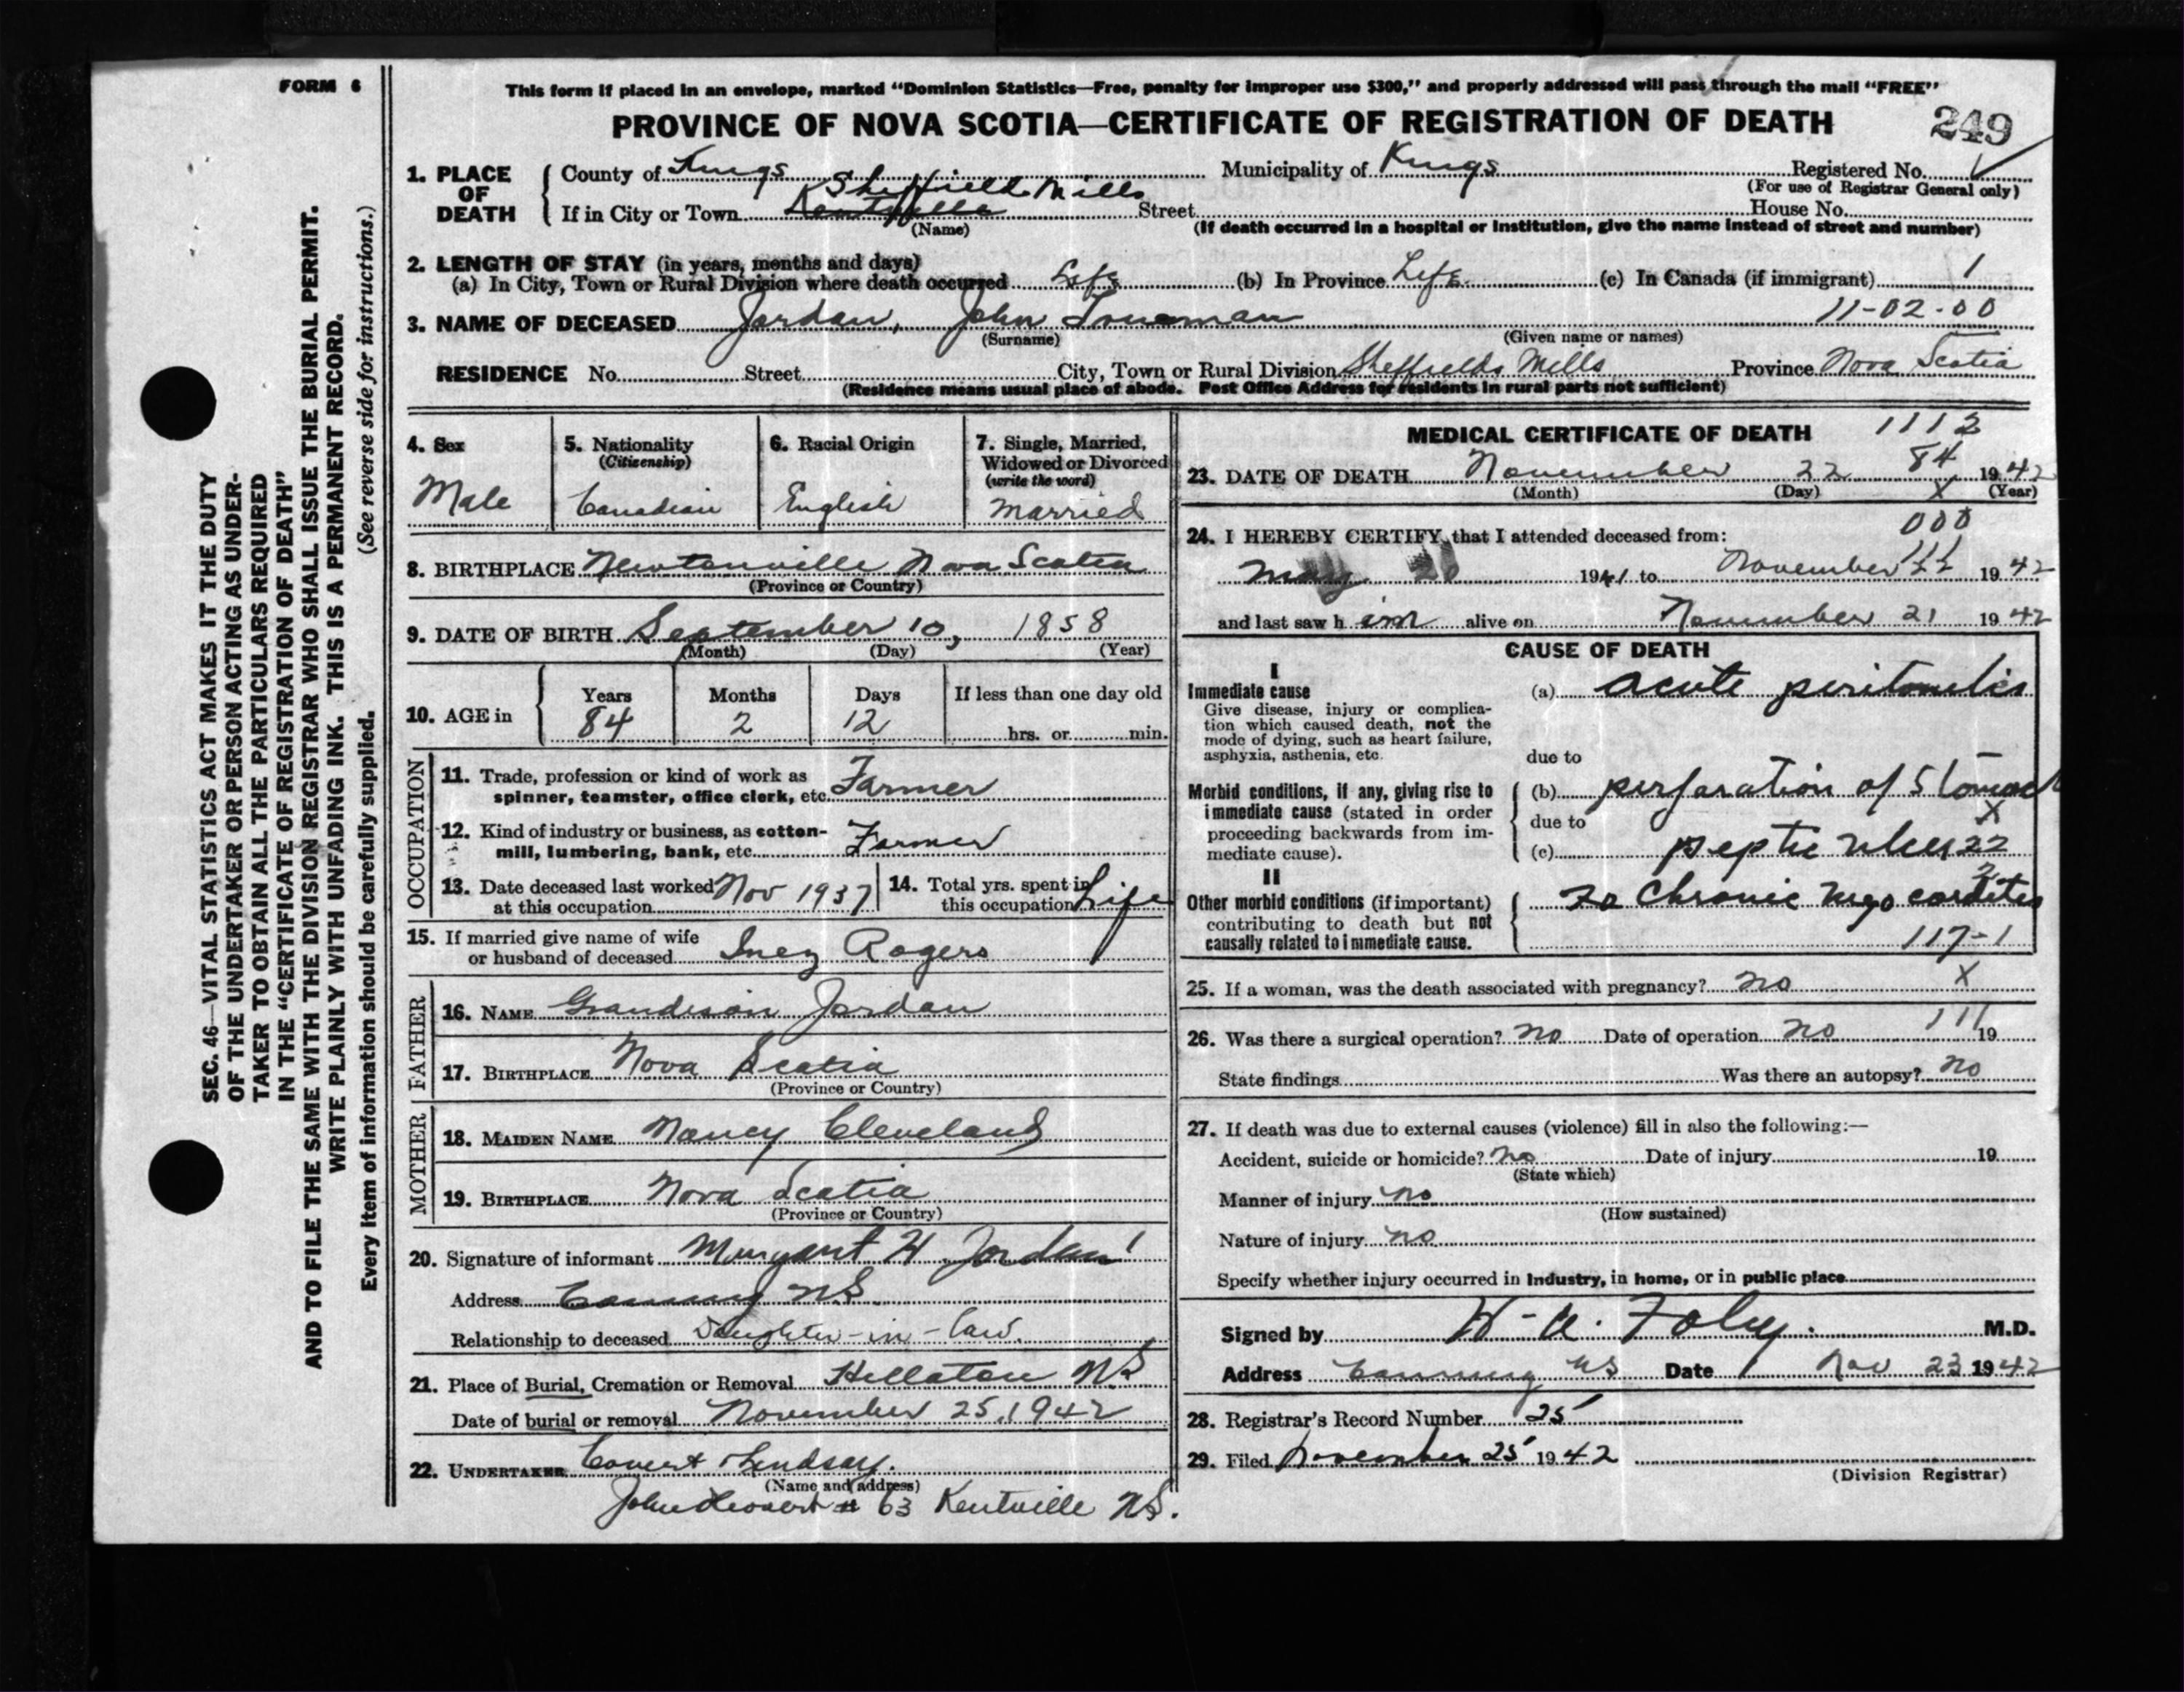 FORM 6
This form if placed in an envelope, marked "Dominion Statistics—Free, penalty for improper use $300," and properly addressed will pass through the mail "FREE"
PROVINCE OF NOVA SCOTIA—CERTIFICATE OF REGISTRATION OF DEATH
249
1. PLACE OF DEATH
County of Kings Municipality of Kings Registered No.
(For use of Registrar General only)
Sheffield Mills
If in City or Town Kentville Street House No.
(Name) (If death occurred in a hospital or Institution, give the name instead of street and number)
2. LENGTH OF STAY (in years, months and days)
(a) In City, Town or Rural Division where death occurred Life (b) In Province Life (c) In Canada (if immigrant) 1
11-02-00
3. NAME OF DECEASED Jordan, John Trueman
(Surname) (Given name or names)
RESIDENCE No. Street City, Town or Rural Division Sheffields Mills Province Nova Scotia
(Residence means usual place of abode. Post Office Address for residents in rural parts not sufficient)
4. Sex
Male
5. Nationality
(Citizenship)
Canadian
6. Racial Origin
English
7. Single, Married,
Widowed or Divorced
(write the word)
Married
8. BIRTHPLACE Newtonville Nova Scotia
(Province or Country)
9. DATE OF BIRTH September 10, 1858
(Month) (Day) (Year)
10. AGE in
Years Months Days If less than one day old
84 2 12 hrs. or min.
OCCUPATION
11. Trade, profession or kind of work as
spinner, teamster, office clerk, etc. Farmer
12. Kind of industry or business, as cotton-
mill, lumbering, bank, etc. Farmer
13. Date deceased last worked
at this occupation Nov 1937
14. Total yrs. spent in
this occupation Life
15. If married give name of wife
or husband of deceased Inez Rogers
FATHER
16. NAME Grandison Jordan
17. BIRTHPLACE Nova Scotia
(Province or Country)
MOTHER
18. MAIDEN NAME Nancy Cleveland
19. BIRTHPLACE Nova Scotia
(Province or Country)
20. Signature of informant Margaret H. Jordan
Address Canning NS
Relationship to deceased Daughter-in-law.
21. Place of Burial, Cremation or Removal Hillaton NS
Date of burial or removal November 25, 1942
22. UNDERTAKER Covert Lindsay.
(Name and address)
John # 63 Kentville NS.
MEDICAL CERTIFICATE OF DEATH
1112
84
23. DATE OF DEATH November 22 1942
(Month) (Day) (Year)
X
000
24. I HEREBY CERTIFY that I attended deceased from:
May 20 1941 to November 22 1942
and last saw h im alive on November 21 1942
CAUSE OF DEATH
I
Immediate cause
Give disease, injury or complica-
tion which caused death, not the
mode of dying, such as heart failure,
asphyxia, asthenia, etc.
(a) acute peritonitis
due to
Morbid conditions, if any, giving rise to
immediate cause (stated in order
proceeding backwards from im-
mediate cause).
(b) perforation of Stomach
X
due to
(c) peptic ulcer 22
II
Other morbid conditions (if important)
contributing to death but not
causally related to immediate cause.
Chronic myocarditis
117-1
25. If a woman, was the death associated with pregnancy? no X
111
26. Was there a surgical operation? no Date of operation no 19
State findings Was there an autopsy? no
27. If death was due to external causes (violence) fill in also the following:—
Accident, suicide or homicide? no Date of injury 19
(State which)
Manner of injury no
(How sustained)
Nature of injury no
Specify whether injury occurred in Industry, in home, or in public place
Signed by Foley. M.D.
Address Canning NS Date Nov 23 1942
28. Registrar's Record Number 25
29. Filed November 25 1942
(Division Registrar)
SEC. 46—VITAL STATISTICS ACT MAKES IT THE DUTY
OF THE UNDERTAKER OR PERSON ACTING AS UNDER-
TAKER TO OBTAIN ALL THE PARTICULARS REQUIRED
IN THE "CERTIFICATE OF REGISTRATION OF DEATH"
AND TO FILE THE SAME WITH THE DIVISION REGISTRAR WHO SHALL ISSUE THE BURIAL PERMIT.
WRITE PLAINLY WITH UNFADING INK. THIS IS A PERMANENT RECORD.
Every item of information should be carefully supplied. (See reverse side for instructions.)